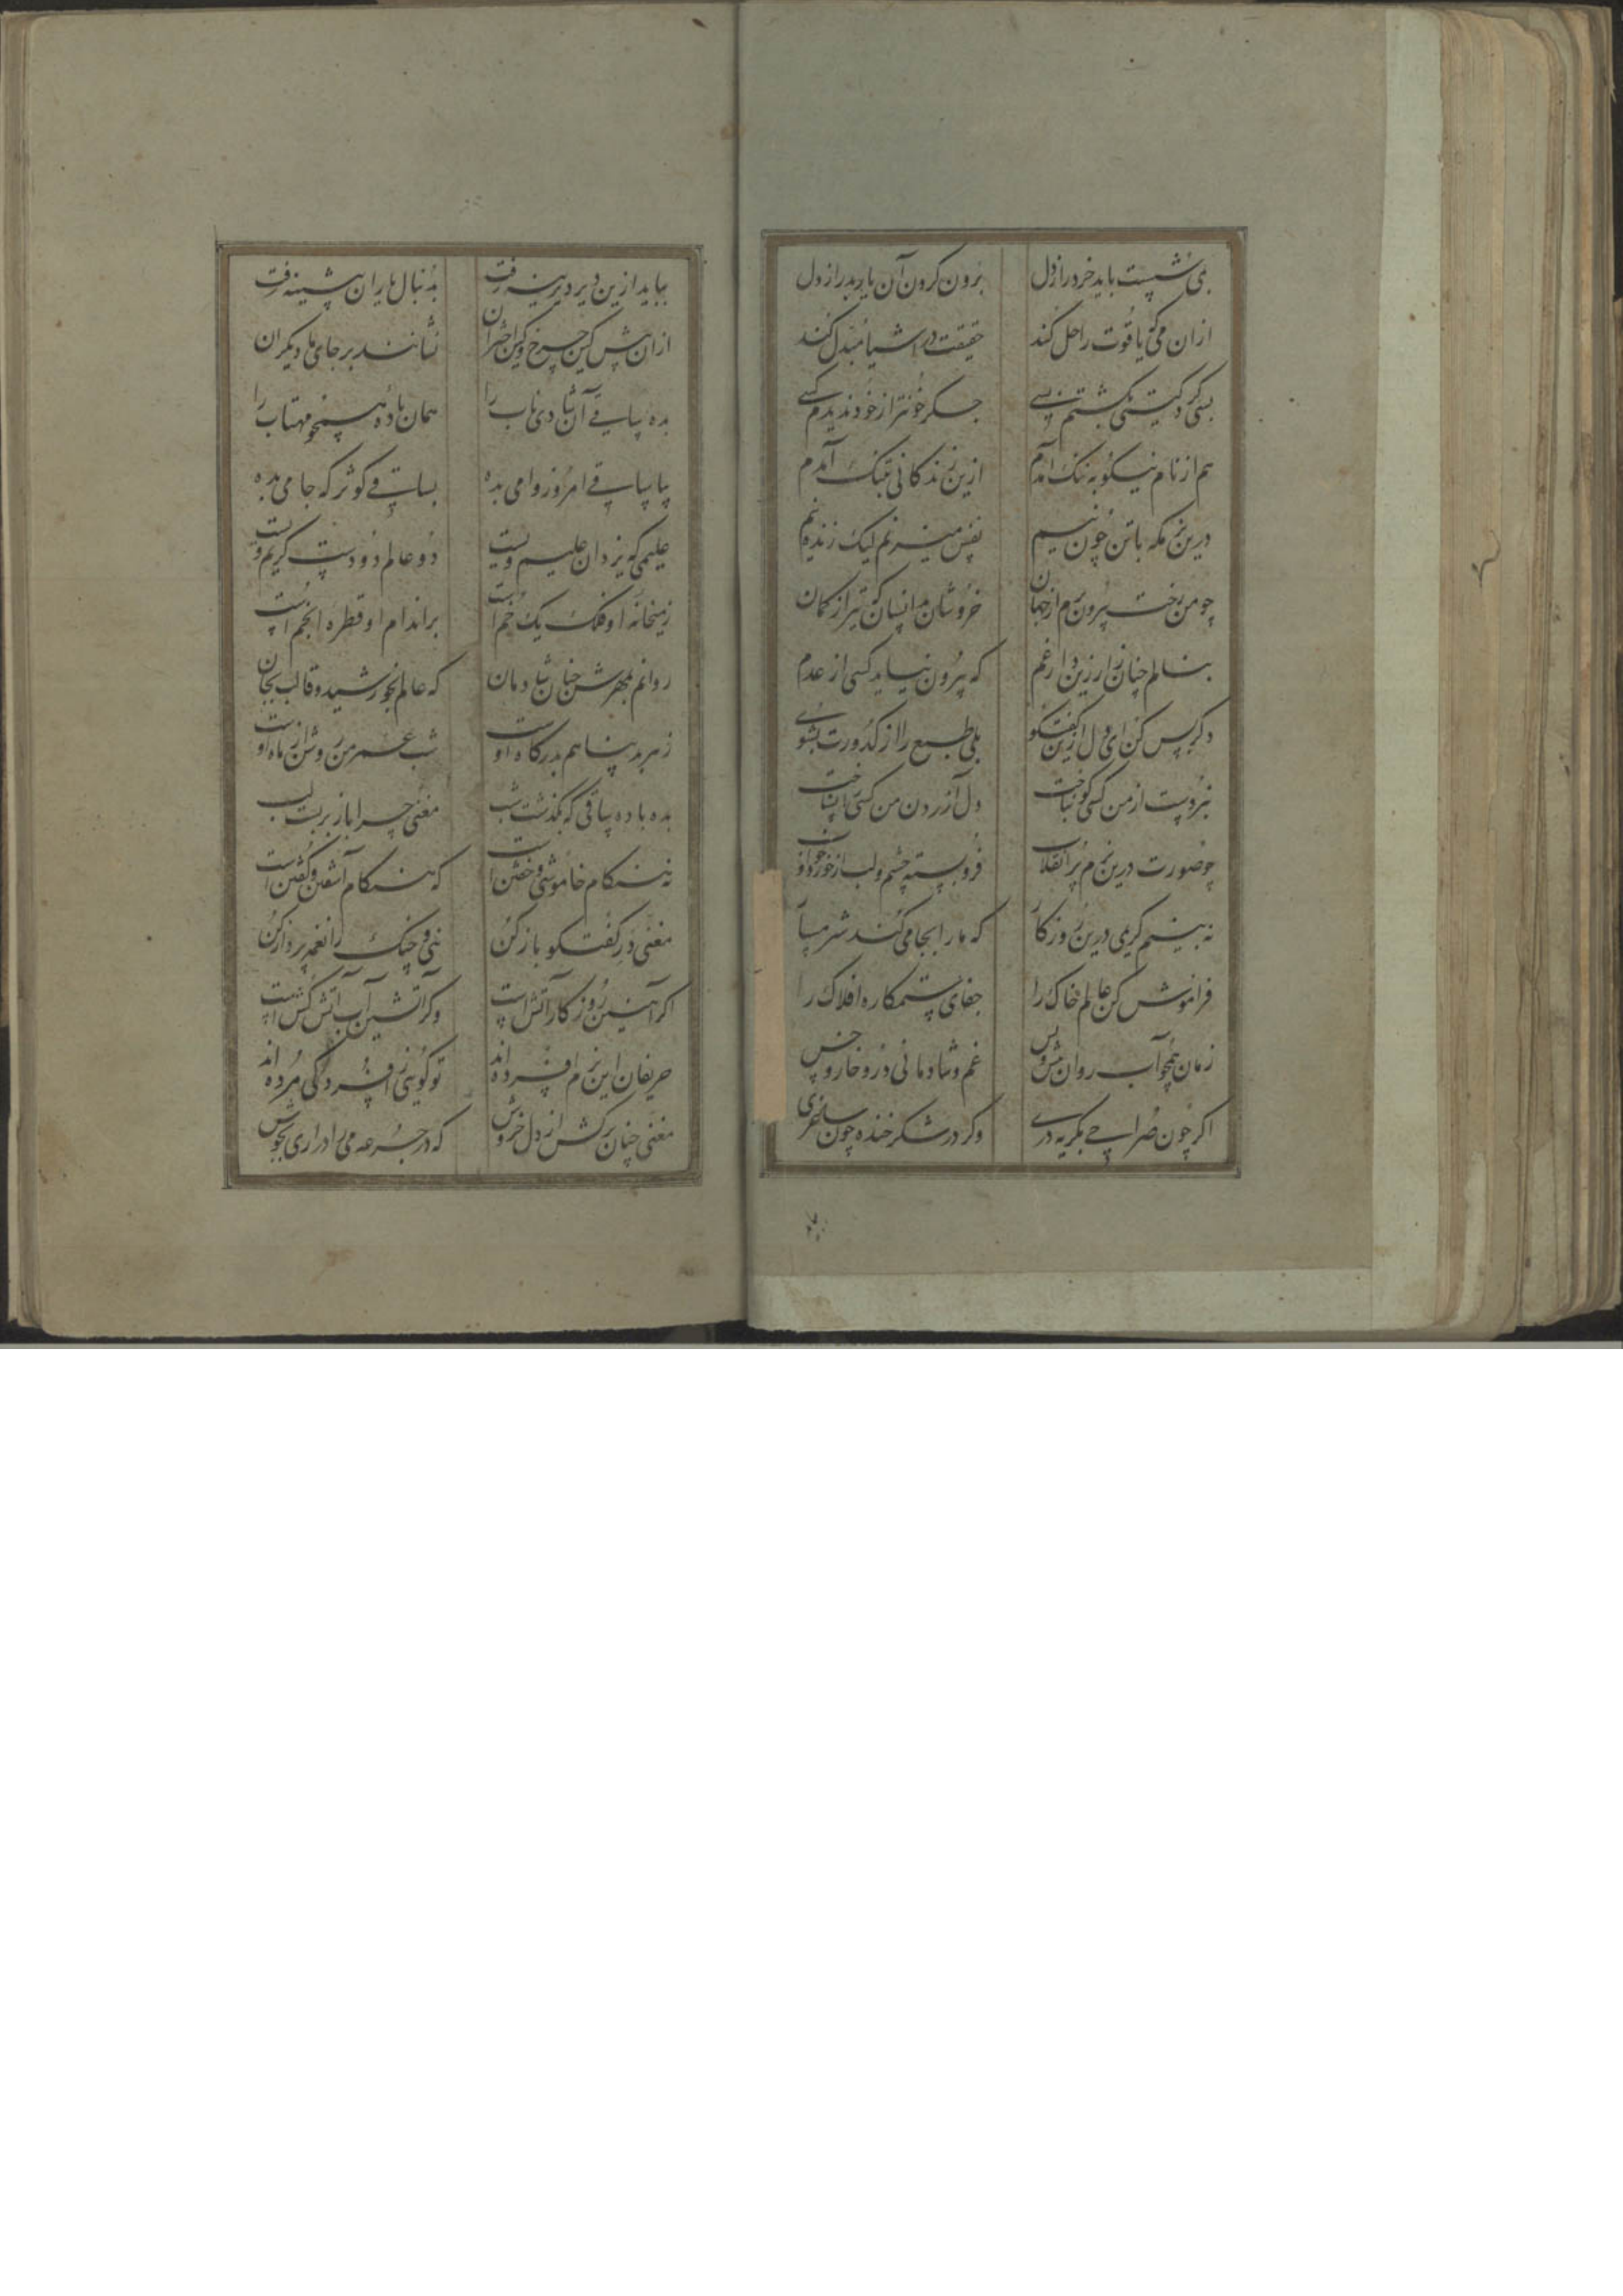 بمی شست باید خرد را ز دل برون کردن آن یار بد را ز دل
ازان می که یاقوت را حل کند حقیقت در اشیا مبدل کند
بسی گرد گیتی بگشتم بسی جگر خونتر از خود ندیدم کسی
هم از نام نیکو به ننک آمدم ازین زندکانی بتنک آمدم
درین بزمکه با تن چون نیم نفس میزنم لیک زنده نیم
چو من رخت بیرون برم از جهان خروشان بدانسان که تیر از کمان
بنالم چنان زار زین دار غم که بیرون نیاید کسی از عدم
دکر بس کن ای دل ازین گفتکو بلی طبع را از کدورت بشوی
نبردست از من کسی کو نباخت دل آزردن من کسی را نساخت
چو صورت درین بزم پر انقلاب فروبسته چشم و لب از خورد و خواب
نه بینم کریمی درین روزکار که ما را بجامی کند شرمسار
فراموش کن عالم خاک را جفای ستمکاره افلاک را
زمان همچو آب روان است و بس غم و شادمانی درو خار و خس
اکر چون صراحی بکریه دری وکر در شکر خنده چون ساغری
بباید ازین دیر دیرینه رفت بدنبال یاران پیشینه رفت
ازان پیش کین چرخ و کین اختران نشانند بر جای ما دیکران
بده ساقی آن شادی ناب را همان باده همچو مهتاب را
بیا ساقی امروز وامی بده بساقی کوثر که جامی بده
علیمی که یزدان علیم ویست دو عالم دو دست کریم ویست
ز میخانه او فلک یک خم است بر اندام او قطره انجم است
روانم بمهرش چنان شادمان که عالم بخورشید و قالب بجان
ز هر بد پناهم بدرکاه اوست شب عمر من روشن از ماه اوست
بده باده ساقی که بگذشت شب مغنی چرا باز بربست لب
نه هنکام خاموشی و خفتن است که هنکام آشفتن و کفتن است
مغنی در کفتکو باز کن نی و چنک را نغمه پرداز کن
اکر آهنین روزکار آتش است وکر آتشین آب آتش کش است
حریفان این بزم افسرده اند تو کویی ز افسردگی مرده اند
مغنی چنان برکش از دل خروش که در جرعه می را در آری بجوش